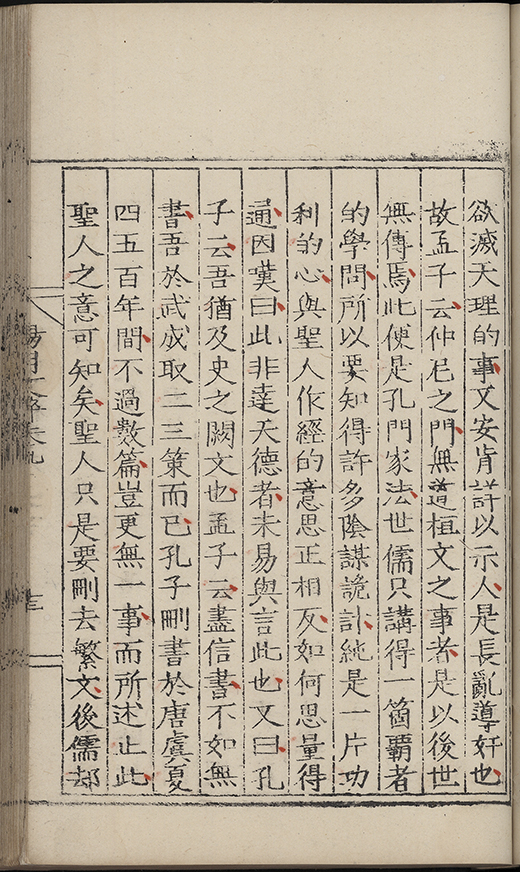 欲滅天理的事又安肯詳以示人是長亂導奸也
故孟子云仲尼之門無道桓文之事者是以後世
無傳焉此便是孔門家法世儒只講得一箇覇者
的學問所以要知得許多陰謀詭計純是一片功
利的心與聖人作經的意思正相反如何思量得
通因嘆曰此非達天德者未易與言此也又曰孔
子云吾猶及史之闕文也孟子云盡信書不如無
書吾於武成取二三策而已孔子刪書於唐虞夏
四五百年間不過數篇豈更無一事而所述止此
聖人之意可知矣聖人只是要刪去繁文後儒却